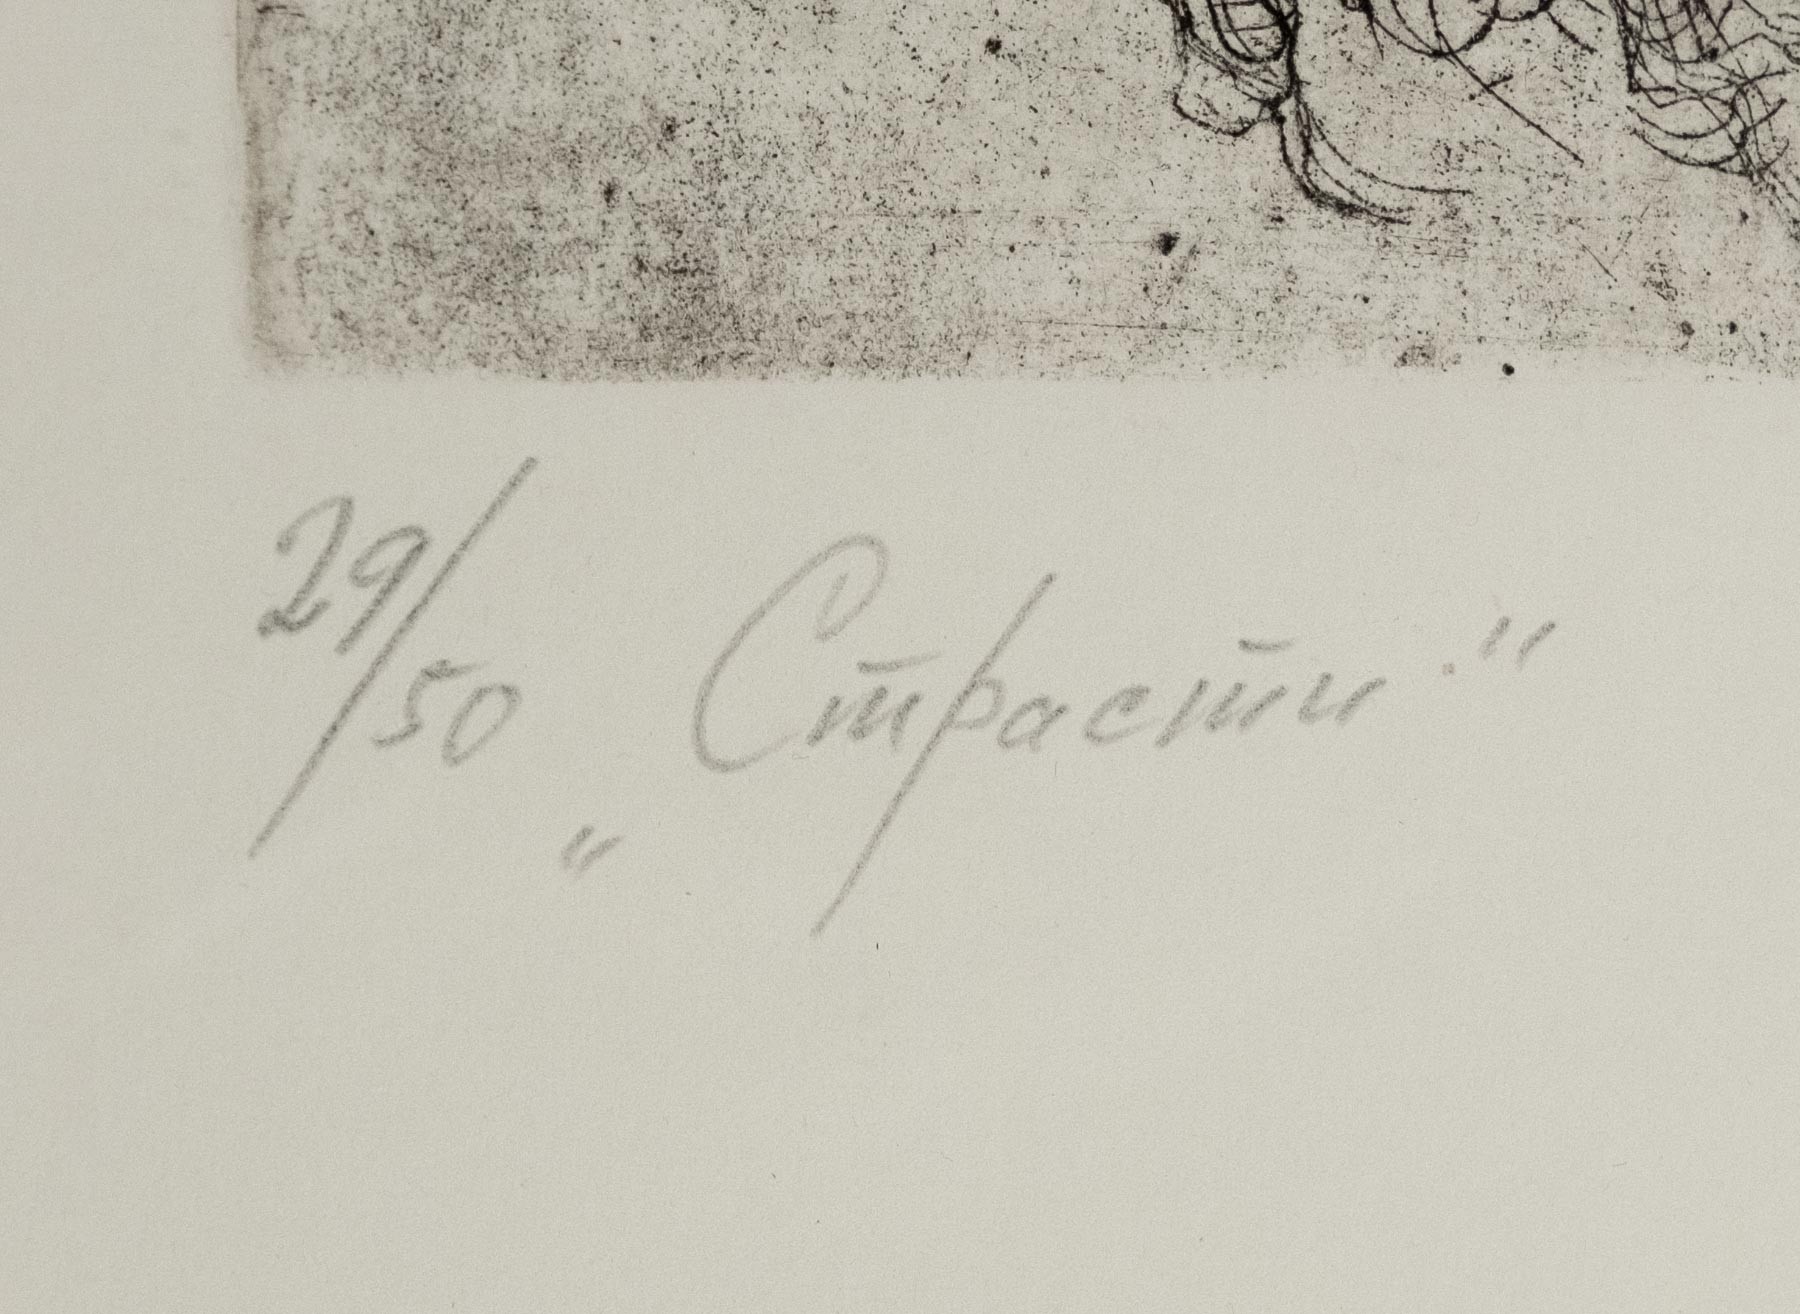 29/50 „Страсти"